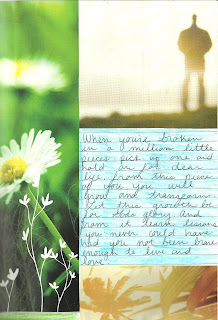 When you're broken
in a million little
pieces, pick up one and
hold on for dear
life. from this piece
of you you will
grow and transform.
Let this growth be
for Gods glory. and
from it learn lessons
you never could have
had you not been brave
enough to live and
love".